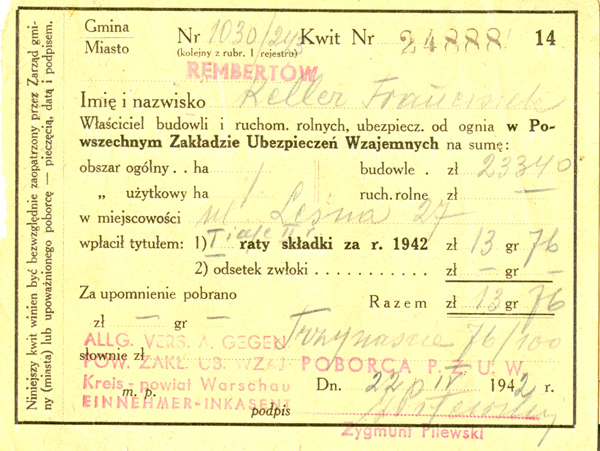 Niniejszy kwit winien być bezwzględnie zaopatrzony przez Zarząd gmi-
ny (miasta) lub upoważnionego poborcę — pieczęcią, datą i podpisem.
Gmina
Miasto
Nr 1030/ Kwit Nr 24888 14
(kolejny z rubr. 1 rejestru)
REMBERTÓW
Imię i nazwisko Keller Franciszek
Właściciel budowli i ruchom. rolnych, ubezpiecz. od ognia w Po-
wszechnym Zakładzie Ubezpieczeń Wzajemnych na sumę:
obszar ogólny . . ha budowle . zł 23340
„ użytkowy ha ruch. rolne zł —
w miejscowości ul Leśna 27
wpłacił tytułem: 1) raty składki za r. 1942 zł 13 gr 76
2) odsetek zwłoki . . . . . . . . . . . zł — gr —
Za upomnienie pobrano Razem zł 13 76
zł — gr —
słownie zł Trzynaście 76/100
ALLG. VERS. A. GEGEN
POW. ZAKŁ. UB. WZAJ. POBORCA P. Z. U. W.
Kreis - powiat Warschau
EINNEHMER-INKASENT
m. p. Dn. 22 IV 1942 r.
podpis
Zygmunt Pilewski